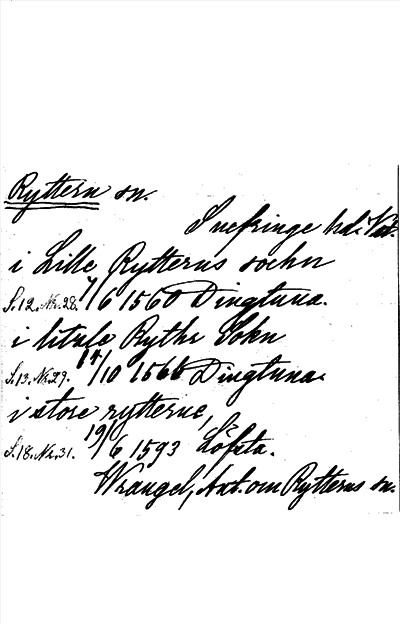 Ryttern sn.
Snefringe hd. Väst.
i Lille Rytterns sochn
S.12. Nr. 28. 7/6 1560 Dingtuna.
i litsle Rythr Sokn
S.13. Nr. 29. 14/10 1568 Dingtuna.
i store rytterne,
S.18. Nr. 31. 19/6 1593 Löfsta.
Wrangel, Ant. om Rytterns sn.